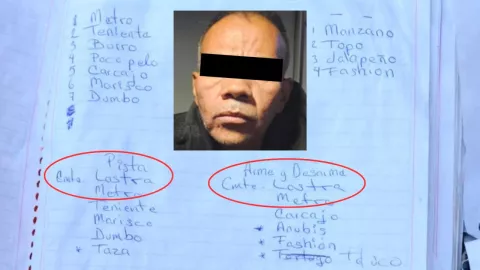 1 Metro
2 Teniente
3 Burro
4 Pocopelo
5 Carcajo
6 Marisco
7 Dumbo
8
1 Manzano
2 Topo
3 Jalapeño
4 Fashion
Pista
Cmte. Lastra
Metro
Teniente
Marisco
Dumbo
* Taza
Arme y Desarme
Cmte. Lastra
Metro
Carcajo
* Anubis
* Fashión
* Tortugo Tosco